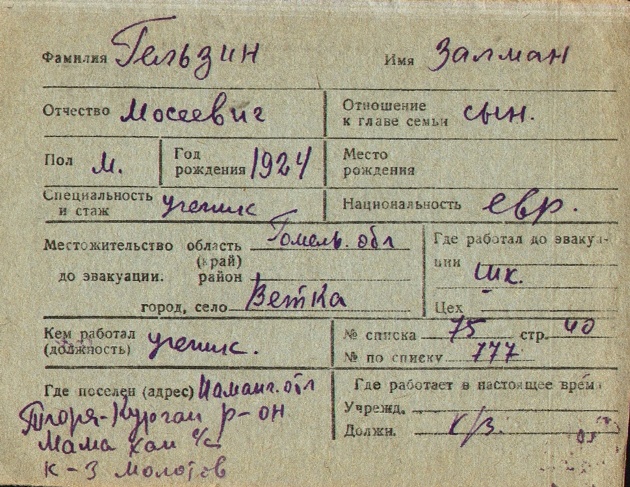 Фамилия Гельзин Имя Залман
Отчество Мосеевич Отношение к главе семьи сын.
Пол м. Год рождения 1924 Место рождения
Специальность и стаж ученик Национальность евр.
Местожительство область (край) Гомель. обл
до эвакуации. район
город, село Ветка
Где работал до эвакуации шк.
Цех
Кем работал (должность) ученик.
№ списка 75 стр. 40
№ по списку 777
Где поселен (адрес) Наманг. обл
Тюря-Курган р-он
Мама хан с/с
к-з Молотов
Где работает в настоящее время
Учрежд.
Должн. к/з.